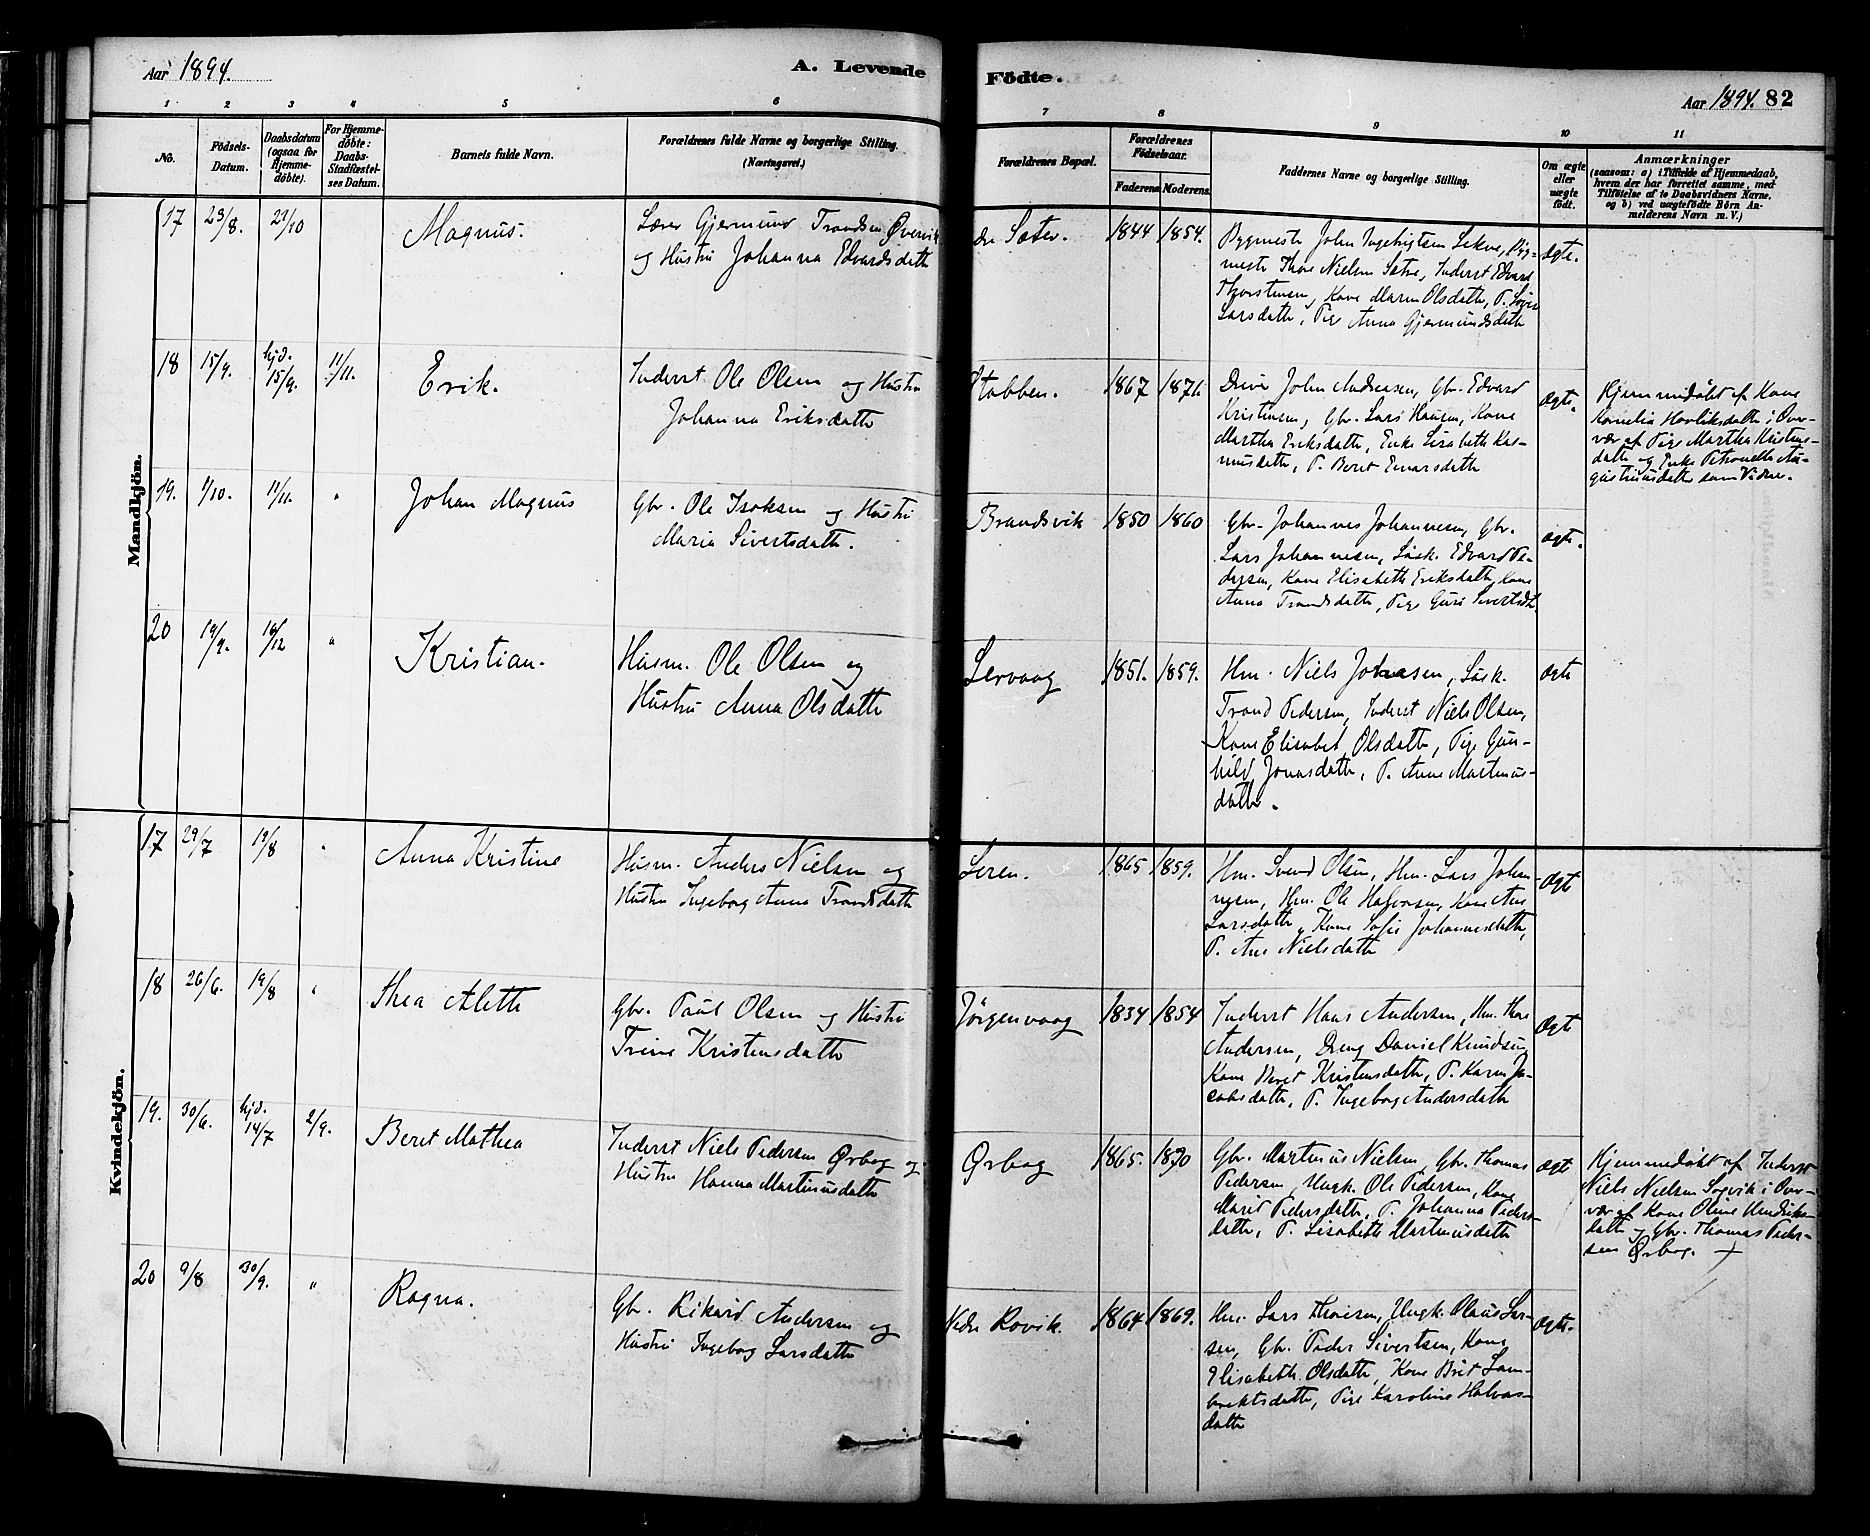 Aar 1894.
A. Levende
Födte.
Aar 1894. 82
1 2 3 4 5 6 7 8 9 10 11
No.
Födsels-
Datum.
Daabsdatum
(ogsaa for
Hjemme-
döbte).
For Hjemme-
döbte:
Daabs-
Stadfæstel-
ses Datum.
Barnets fulde Navn.
Forældrenes fulde Navne og borgerlige Stilling.
(Næringsvei.)
Forældrenes Bopæl.
Forældrenes
Födselsaar.
Faderens Moderens.
Faddernes Navne og borgerlige Stilling.
Om ægte
eller
uægte
födt.
Anmærkninger
(saasom: a) i Tilfælde af Hjemmedaab,
hvem der har forrettet samme, med
Tilföielse af to Daabsvidners Navne,
og b) ved uægtefödte Börn An-
melderens Navn m. V.)
Mandkjön.
17 23/8. 21/10 Magnus.
Lærer Gjermund Trondsen Øvervik
og Hustru Johanna Edvardsdatter
Sæter. 1844 1854.
Bygmester John Ingebrigtsen Lekve, Byg-
mester Thore Nielsen Sætre, Inderst Edvard
Thorstensen, Kone Maren Olsdatter, P.
Larsdatter, Pige Anna Gjermundsdatter
Ægte.
18 15/9. hjd.
15/9. 11/11. Erik.
Inderst Ole Olsen og Hustru
Johanna Eriksdatter
Stobben. 1867 1871.
John Andreasen, Gbr. Edvard
Kristensen, Gbr. Lars Hansen, Kone
Martha Eriksdatter, Enke Lisabeth Ras-
musdatter, P. Beret Einarsdatter
Ægte.
Hjemmedøbt af Kone
Kornelia i Over-
vær af Pige Martha Kristens-
datter og Enke Petronelle Au-
gustinusdatter som Vidner.
19. 1/10. 11/11. " Johan Magnus
Gbr. Ole Isaksen og Hustru
Maria Sivertsdatter.
Brandsvik 1850 1860
Gbr. Johannes Johannesen, Gbr.
Lars Johannesen, Løsk. Edvard Pe-
dersen, Kone Elisabeth Eriksdatter, Kone
Anna Trondsdatter, Pige Guri Sivertsdt.
ægte.
20 19/9. 16/12 " Kristian.
Husm. Ole Olsen og
Hustru Anna Olsdatter
Lervaag 1851. 1859.
Hm. Niels Johnsen, Løsk.
Trond Pedersen, Inderst Niels Olsen,
Kone Elisabet Olsdatter, Pige Gun-
hild Jonasdatter, P. Anne Martinus-
datter.
Ægte
Kvindekjön.
17 29/7 19/8 " Anna Kristine
Husm. Anders Nielsen og
Hustru Ingeborg Anna Trondsdatter
Leren. 1865 1859.
Hm. Svend Olsen, Hm. Lars Johan-
nesen, Hm. Ole Halvorsen, Kone Ane
Larsdatter, Kone Sofie Johannesdatter,
P. Ane Nielsdatter
Ægte
18 26/6. 19/8 " Thea Alette
Gbr. Paul Olsen og Hustru
Trine Kristensdatter
Jörgenvaag 1834 1854
Inderst Hans Andersen, Hm. Thore
Andersen, Dreng Daniel Knudsen,
Kone Beret Kristensdatter, P. Karen Ja-
cobsdatter, P. Ingeborg Andersdatter
Ægte
19. 30/6. hjd.
14/7 2/9. Beret Mathea
Inderst Niels Pedersen Ørbog og
Hustru Hanna Martinusdatter
Ørbog 1865. 1870
Gbr. Martinus Nielsen, Gbr. Thomas
Pedersen, Ungk. Ole Pedersen, Kone
Marit Pedersdatter, P. Johanna Peders-
datter, P. Lisabeth Martinusdatter
Ægte
Hjemmedøbt af Inderst
Niels Nielsen i Over-
vær af Kone Oline Hendriks-
datter og Gbr. Thomas Peder-
sen Ørbog. +
20 9/8 30/9. " Ragna.
Gbr. Rikard Andersen og
Hustru Ingeborg Larsdatter
Nedre Rovik. 1864 1869.
Hm. Lars Thoresen, Ungk. Olaus Lar-
sen, Gbr. Peder Sivertsen, Kone
Elisabeth Olsdatter, Kone Brit Lam-
brektsdatter, Pige Karoline Halvors-
datter
Ægte.